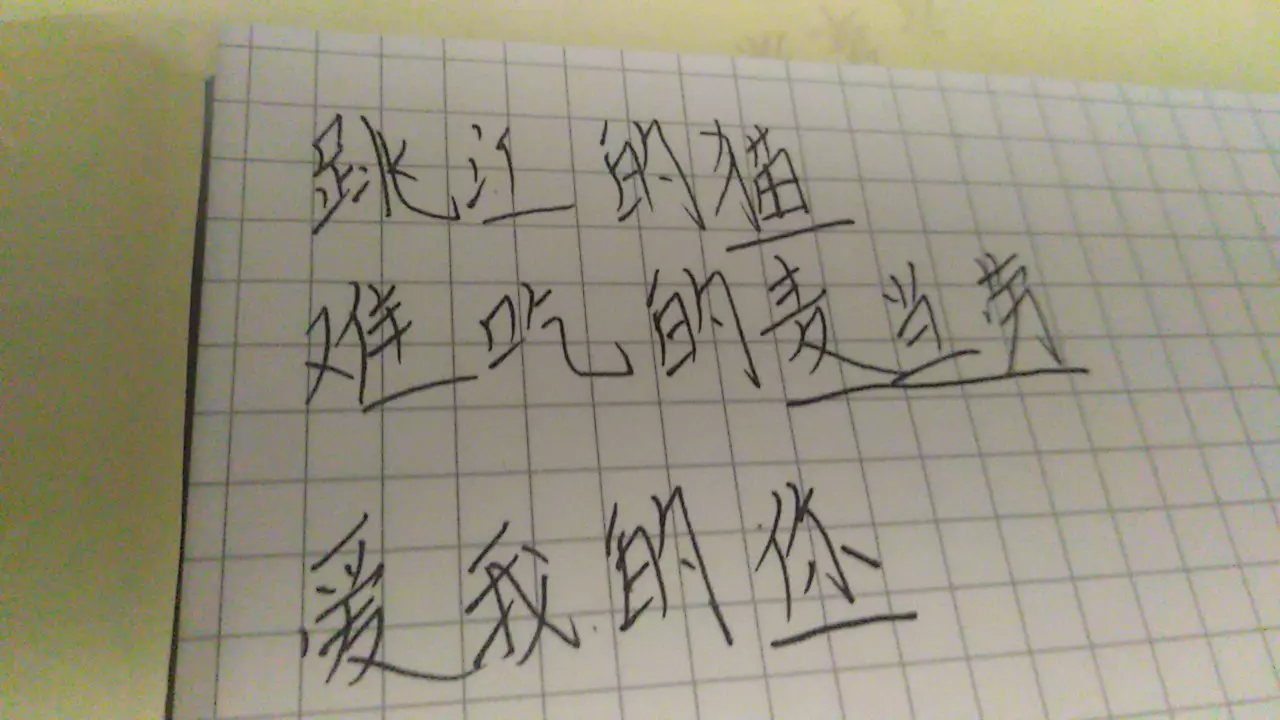 跳江的猫
难吃的麦当劳
爱我的你